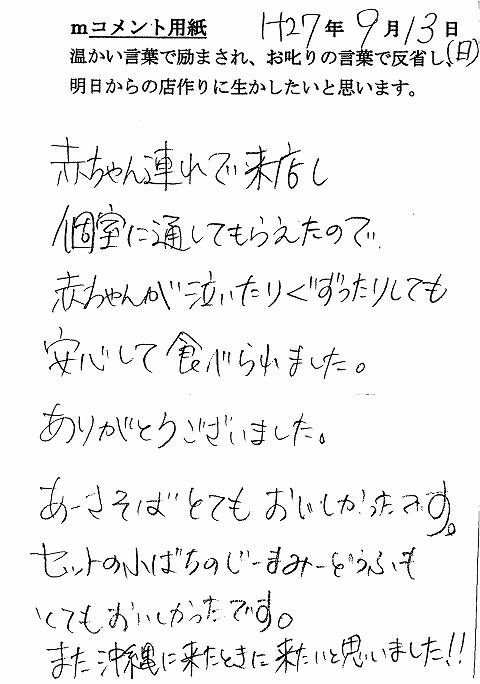 mコメント用紙 H27年9月13日
温かい言葉で励まされ、お叱りの言葉で反省し、(日)
明日からの店作りに生かしたいと思います。
赤ちゃん連れで来店し
個室に通してもらえたので
赤ちゃんが泣いたりぐずったりしても
安心して食べられました。
ありがとうございました。
あーさそばとてもおいしかったです。
セットの小ばちのじーまみーどうふも
とてもおいしかったです。
また沖縄に来たときに来たいと思いました!!